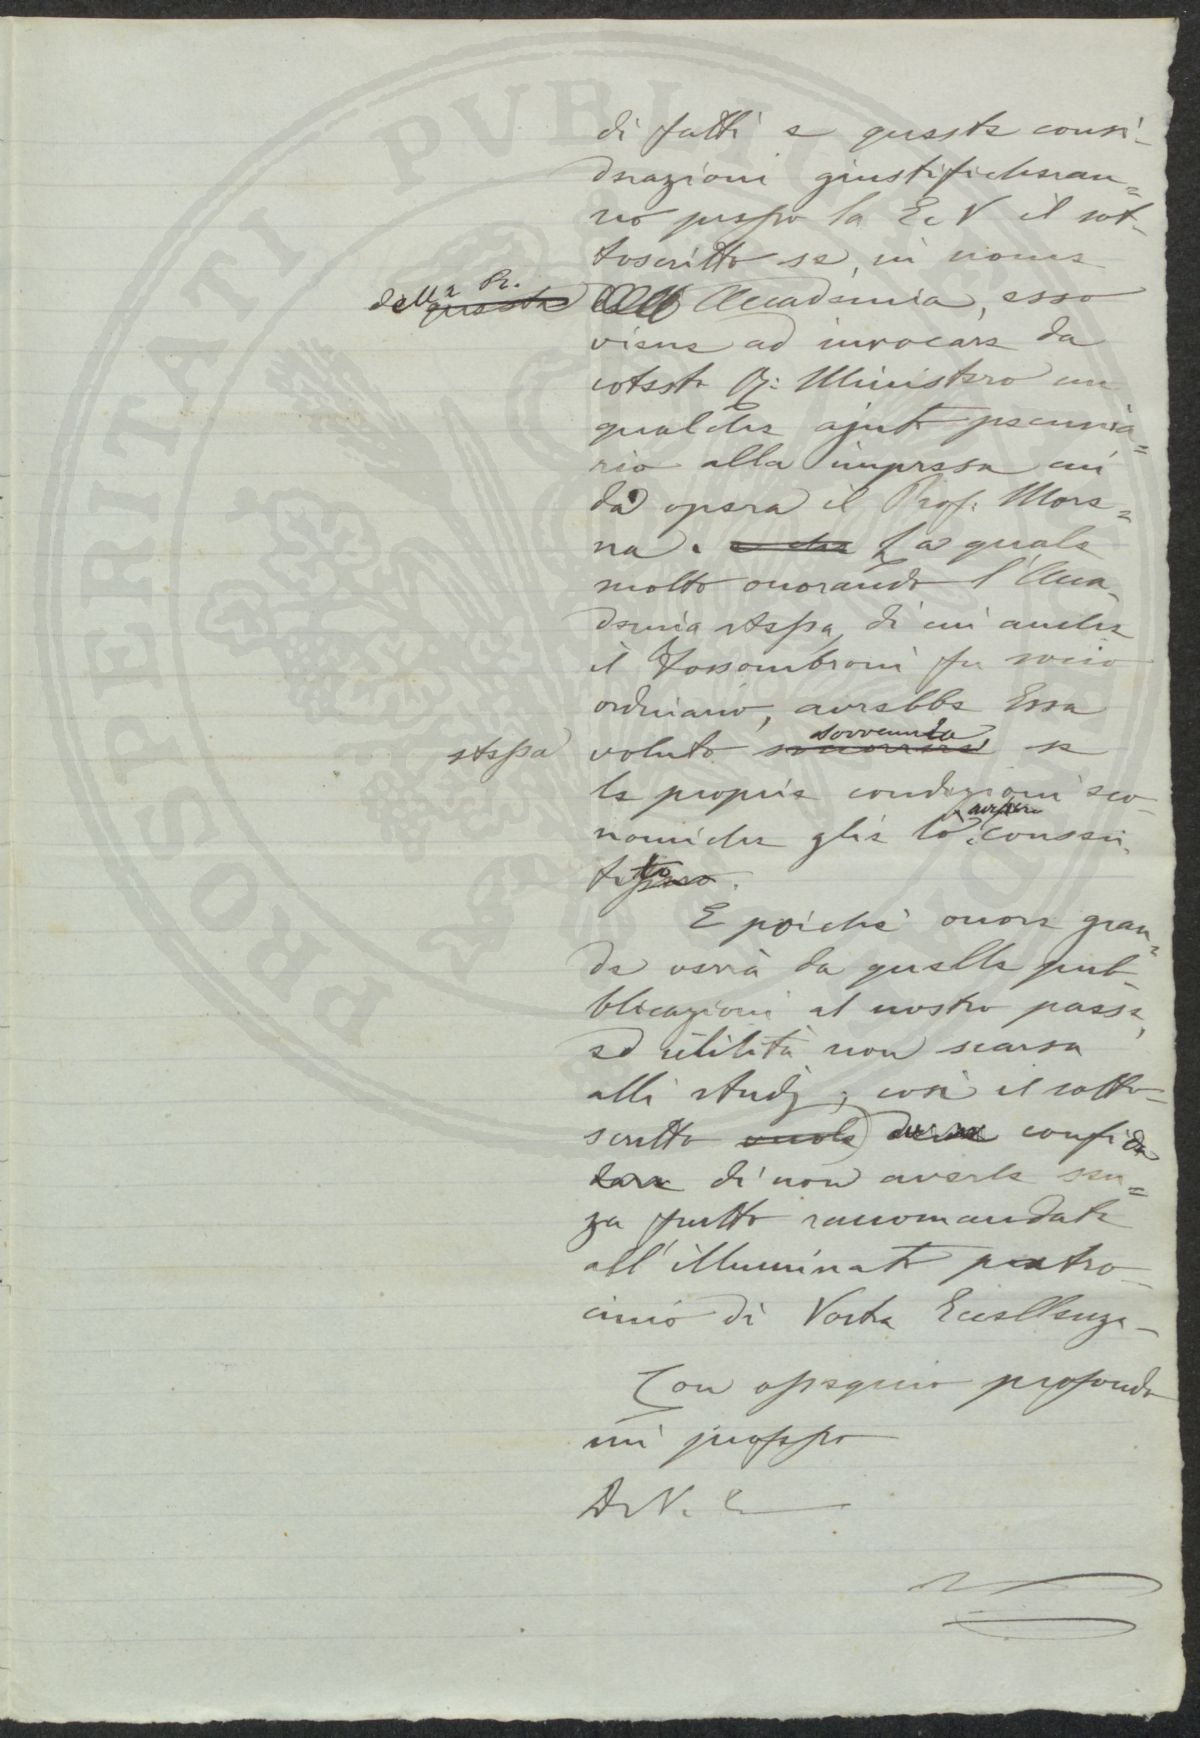 di fatti e queste consi-
derazioni giustificheran=
no presso la E. V. il sot-
toscritto se, in nome
della R. questa dell' Accademia, esso
viene ad invocare da
cotesto R: Ministero un
qualche ajuto pecunia=
rio alla impresa cui
dà opera il Prof: More=
na. e che La quale
molto onorando l'Acca-
demia stessa, di cui anche
il Fossombroni fu socio
ordinario, avrebbe Essa
stessa voluto soccorrere sovvenirla se
le proprie condizioni eco-
nomiche glie lo avessero consen-
tito
E poichè onore gran=
de verrà da quelle pub-
blicazioni al nostro paese,
ed utilità non scarsa
alli studj; così il sotto-
scritto vuole confida
di non averle sen=
za frutto raccomandate
all'illuminato patro-
cinio di Vostra Eccellenza—
Con ossequio profondo
mi professo
D. V. E.
PROSPERITATI PVBLICAE